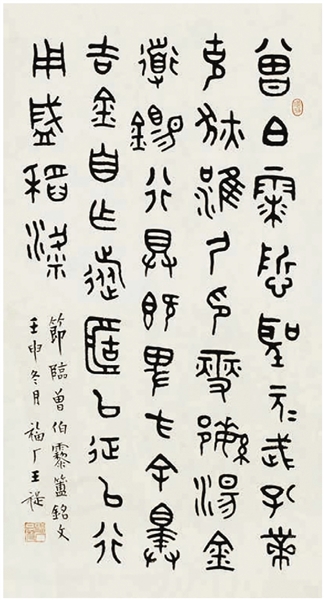 曾白霥悊聖元武孔黹
克狄淮夷印燮繁湯金
道錫行具既卑方余擇
吉金自乍旅簠以征以行
用盛稻粱
節臨曾伯霥簠銘文
壬申冬月福厂王禔